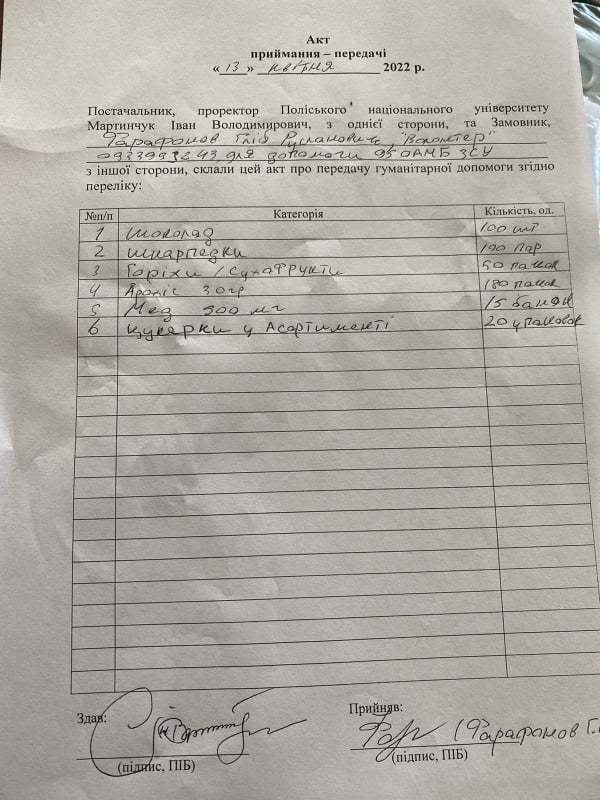 Акт
приймання – передачі
« 13 » квітня 2022 р.
Постачальник, проректор Поліського національного університету
Мартинчук Іван Володимирович, з однієї сторони, та Замовник,
Фарафонов Гліб Русланович "Волонтер"
для допомоги 95 ОАМБ ЗСУ
з іншої сторони, склали цей акт про передачу гуманітарної допомоги згідно
переліку:
№п/п Категорія Кількість, од.
1 Шоколад 100 шт
2 Шкарпедки 100 пар
3 Горіхи / Сухофрукти 50 пачок
4 Арахіс 30гр 180 пачок
5 Мед 300 мг 15 банок
6 Цукерки у Асортименті 20 упаковок
Здав: Прийняв:
Фар (Фарафонов Г.
(підпис, ПІБ) (підпис, ПІБ)